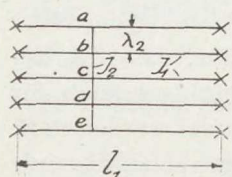 a
b λ₂
c J₂ J₁
d
e
l₁